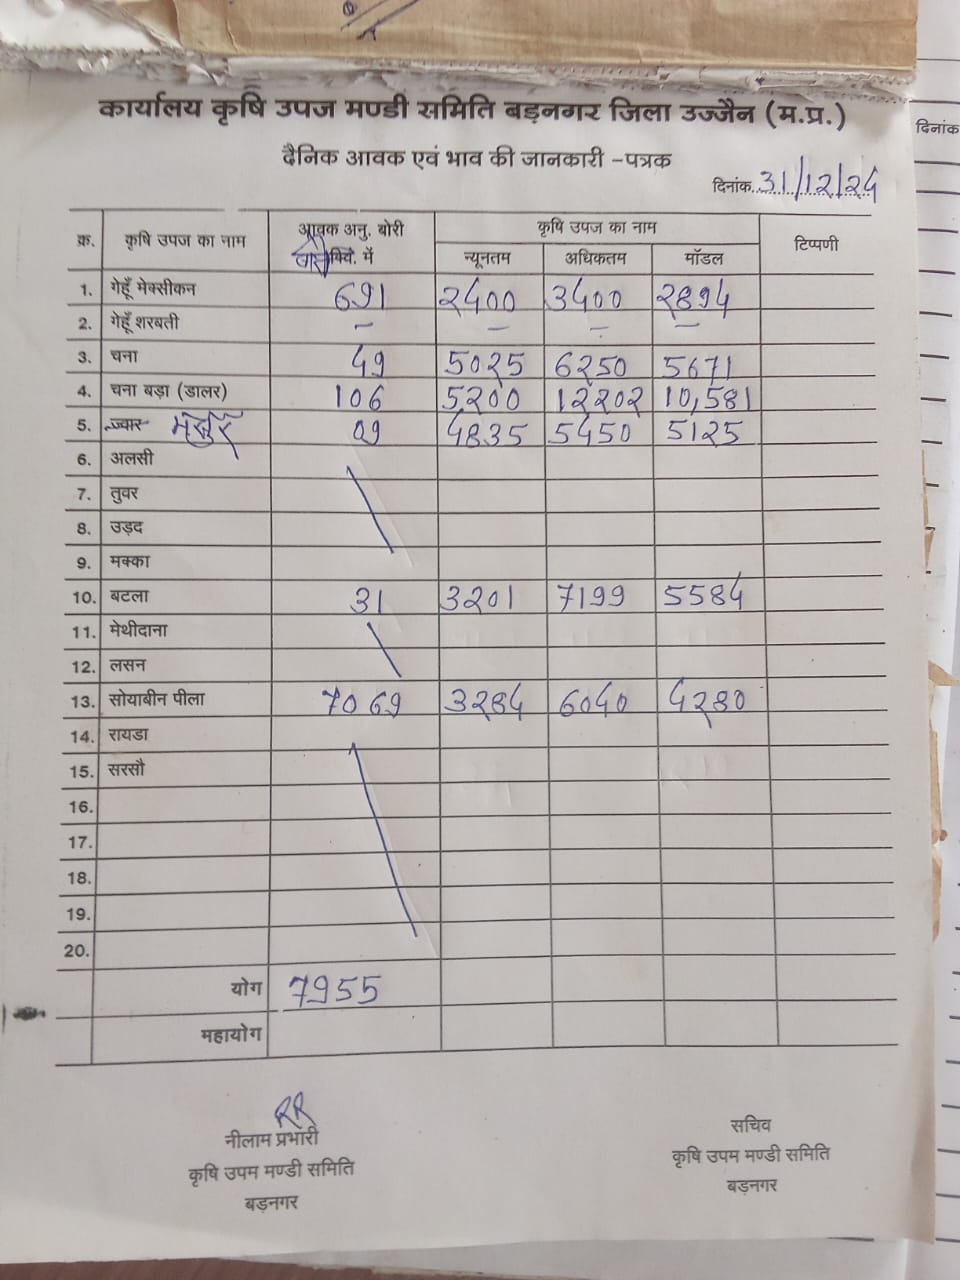 कार्यालय कृषि उपज मण्डी समिति बड़नगर जिला उज्जैन (म.प्र.)
दैनिक आवक एवं भाव की जानकारी -पत्रक
दिनांक
दिनांक 31/12/24
क्र. कृषि उपज का नाम आवक अनु. बोरी क्विं. में कृषि उपज का नाम टिप्पणी
न्यूनतम अधिकतम मॉडल
1. गेहूँ मेक्सीकन 691 2400 3400 2894
2. गेहूँ शरबती - - - -
3. चना 49 5025 6250 5671
4. चना बड़ा (डालर) 106 5200 12202 10,581
5. ज्वार मसुर 09 4835 5450 5125
6. अलसी
7. तुवर
8. उड़द
9. मक्का
10. बटला 31 3201 7199 5584
11. मेथीदाना
12. लसन
13. सोयाबीन पीला 7069 3284 6040 4280
14. रायडा
15. सरसौ
16.
17.
18.
19.
20.
योग 7955
महायोग
RR
नीलाम प्रभारी
कृषि उपम मण्डी समिति
बड़नगर
सचिव
कृषि उपम मण्डी समिति
बड़नगर